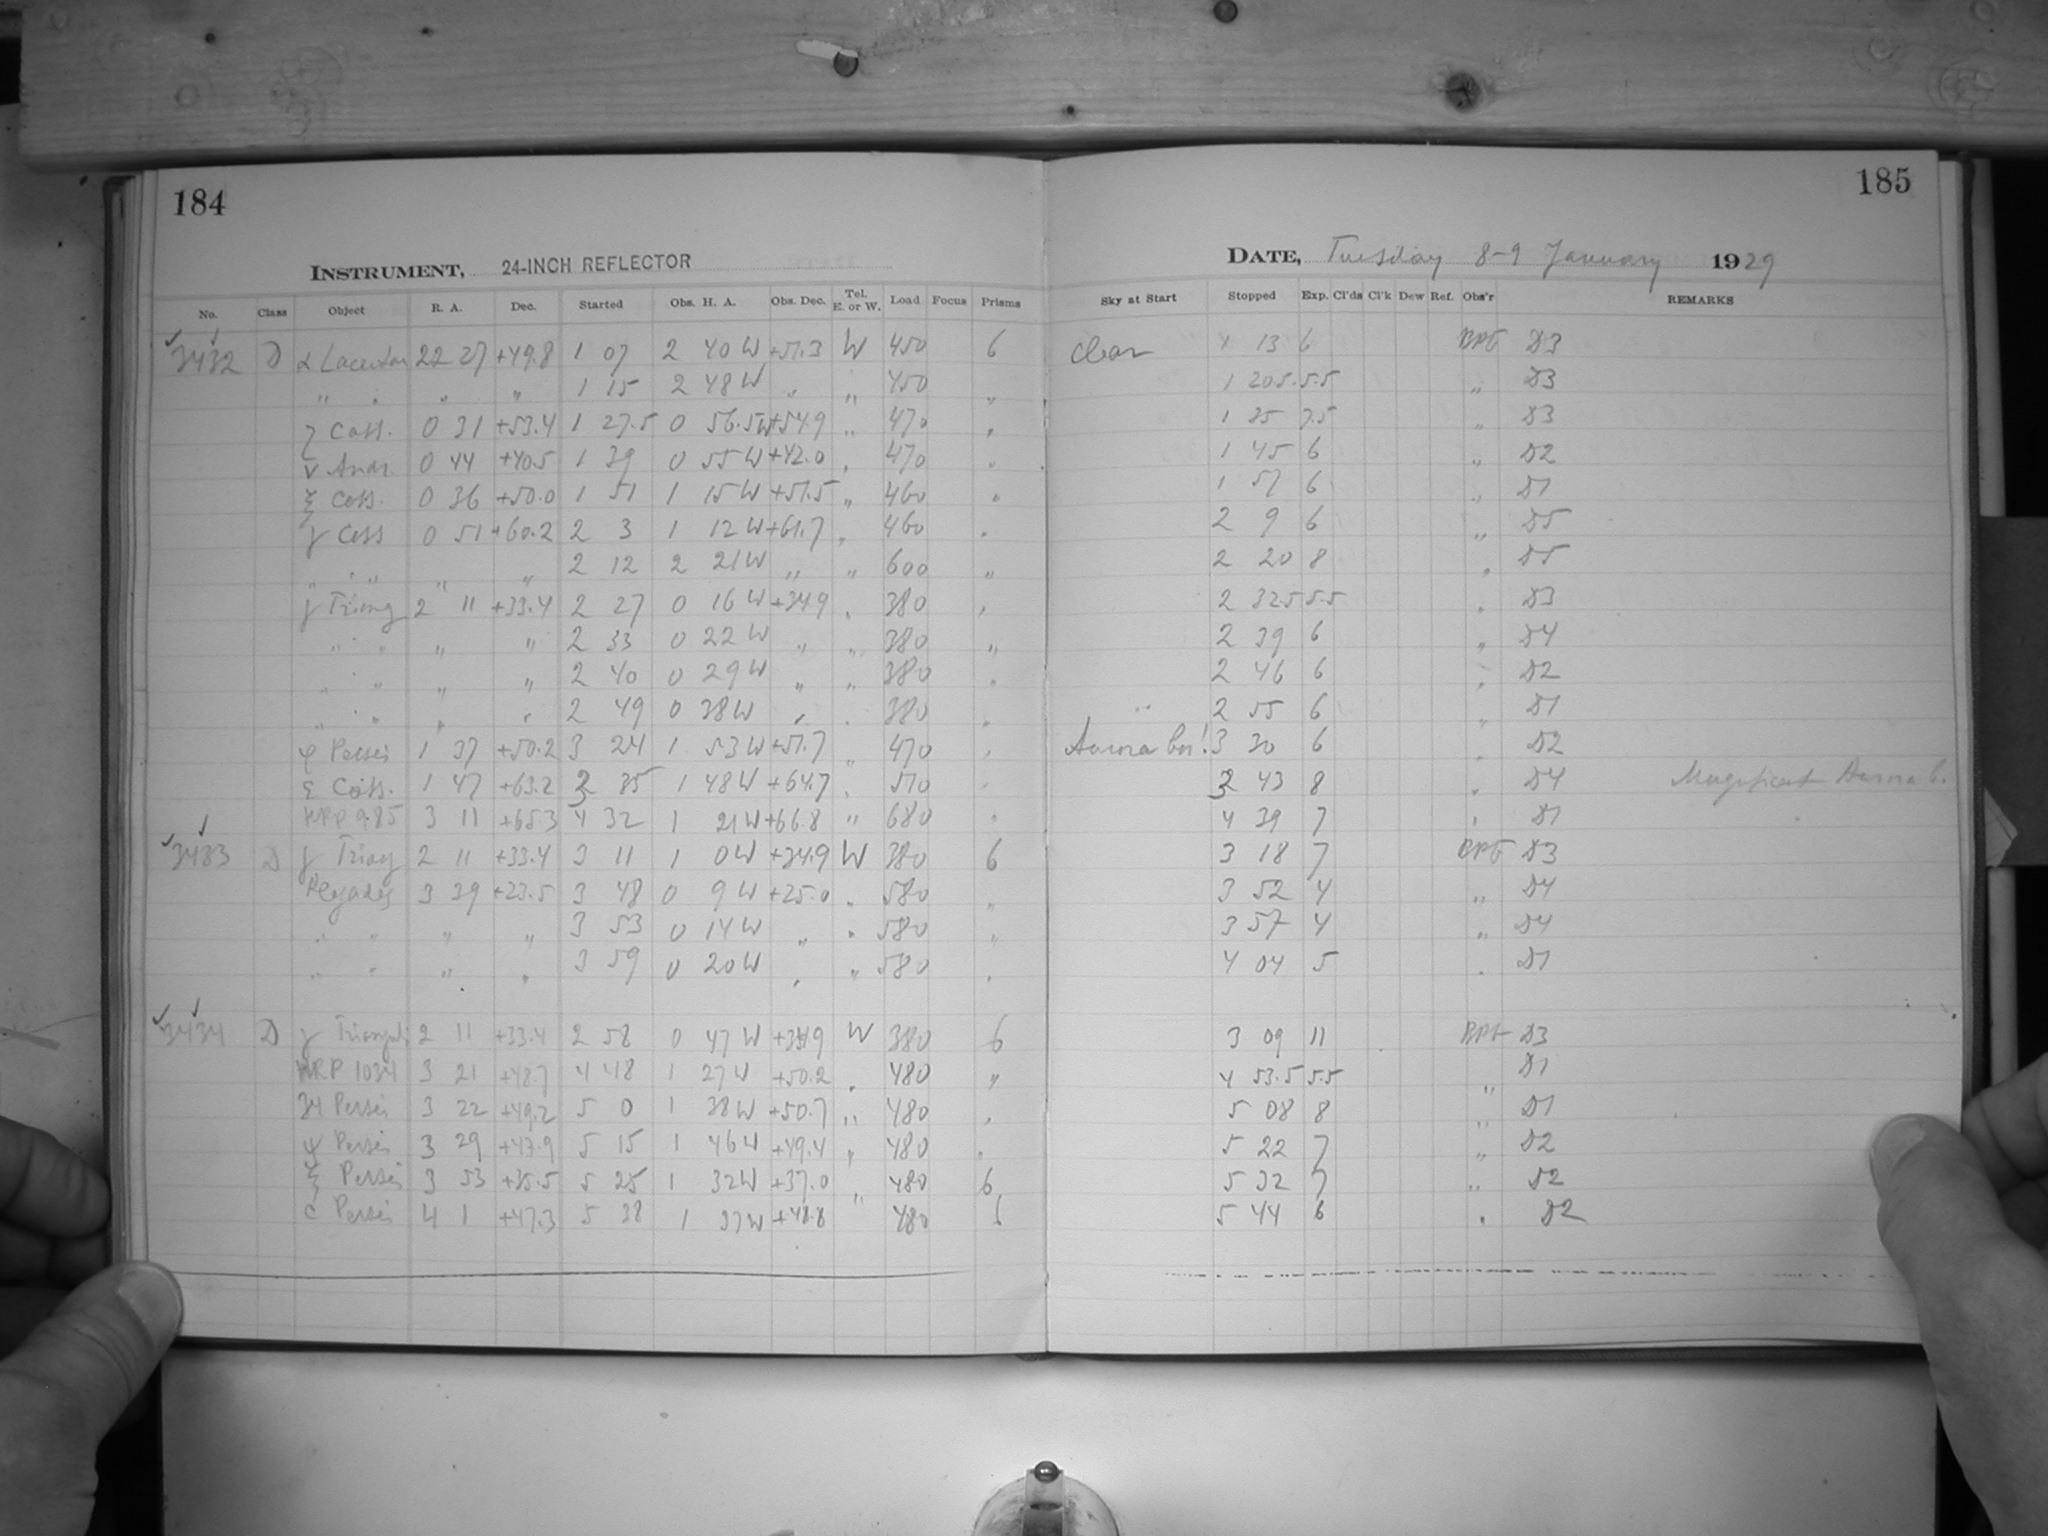 184
185
INSTRUMENT, 24-INCH REFLECTOR
DATE, Tuesday 8-9 January 1929
No. Class Object R. A. Dec. Started Obs. H. A. Obs. Dec. Tel. E. or W. Load Focus Prisms Sky at Start Stopped Exp. Cl'ds Cl'k Dew Ref. Obs'r REMARKS
3432 D α 22 27 +49.8 1 07 2 40 W +51.3 W 450 6 clear 1 13 6 D3
" " " " 1 15 2 48 W " " 450 " 1 20.5 5.5 " D3
ζ Cass. 0 31 +53.4 1 27.5 0 56.5 W +54.9 " 470 " 1 35 7.5 " D3
ν Andr. 0 44 +40.5 1 39 0 55 W +42.0 " 470 " 1 45 6 " D2
ξ Cass. 0 36 +50.0 1 51 1 15 W +51.5 " 460 " 1 57 6 " D1
γ Cass 0 51 +60.2 2 3 1 12 W +61.7 " 460 " 2 9 6 " D5
" " " " 2 12 2 21 W " " 600 " 2 20 8 " D5
γ Triang 2 11 +33.4 2 27 0 16 W +34.9 " 380 " 2 32.5 5.5 " D3
" " " " 2 33 0 22 W " " 380 " 2 39 6 " D4
" " " " 2 40 0 29 W " " 380 " 2 46 6 " D2
" " " " 2 49 0 38 W " " 380 " " 2 55 6 " D1
φ Persei 1 37 +50.2 3 24 1 53 W +51.7 " 470 " Aurora bor! 3 30 6 " D2
ε Cass. 1 47 +63.2 3 35 1 48 W +64.7 " 510 " 3 43 8 " D4 Magnificent Aurora b.
HRP 985 3 11 +65.3 4 32 1 21 W +66.8 " 680 " 4 39 7 " D1
3433 D γ Triang 2 11 +33.4 3 11 1 0 W +34.9 W 380 6 3 18 7 D3
Plejades 3 39 +23.5 3 48 0 9 W +25.0 " 580 " 3 52 4 " D4
" " " " 3 53 0 14 W " " 580 " 3 57 4 " D4
" " " " 3 59 0 20 W " " 580 " 4 04 5 " D1
3434 D γ Trianguli 2 11 +33.4 2 58 0 47 W +34.9 W 380 6 3 09 11 D3
HRP 1034 3 21 +48.7 4 48 1 27 W +50.2 " 480 " 4 53.5 5.5 " D1
34 Persei 3 22 +49.2 5 0 1 38 W +50.7 " 480 " 5 08 8 " D1
ψ Persei 3 29 +47.9 5 15 1 46 W +49.4 " 480 " 5 22 7 " D2
ξ Persei 3 53 +35.5 5 25 1 32 W +37.0 " 480 6 5 32 7 " D2
c Persei 4 1 +47.3 5 38 1 37 W +48.8 480 5 44 6 " D2